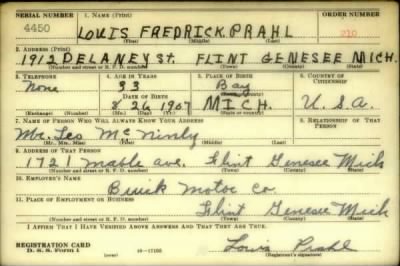 SERIAL NUMBER 1. NAME (Print) ORDER NUMBER
4450 LOUIS FREDRICK PRAHL
(First) (Middle) (Last)
2. ADDRESS (Print)
1912 DELANEY ST. FLINT GENESEE MICH.
(Number and street or R. F. D. number) (Town) (County) (State)
3. TELEPHONE 4. AGE IN YEARS 5. PLACE OF BIRTH 6. COUNTRY OF CITIZENSHIP
None 33 Bay
DATE OF BIRTH (Town or county)
8 26 1907 MICH. U.S.A.
(Exchange) (Number) (Mo.) (Day) (Yr.) (State or country)
7. NAME OF PERSON WHO WILL ALWAYS KNOW YOUR ADDRESS 8. RELATIONSHIP OF THAT PERSON
Mr. Leo
(Mr., Mrs., Miss) (First) (Middle) (Last)
9. ADDRESS OF THAT PERSON
1721 Mable ave. Flint Genesee Mich
(Number and street or R. F. D. number) (Town) (County) (State)
10. EMPLOYER'S NAME
Buick Motor Co
11. PLACE OF EMPLOYMENT OR BUSINESS
Flint Genesee Mich
(Number and street or R. F. D. number) (Town) (County) (State)
I AFFIRM THAT I HAVE VERIFIED ABOVE ANSWERS AND THAT THEY ARE TRUE.
REGISTRATION CARD
D. S. S. Form 1 (over) Louis Prahl
(Registrant's signature)